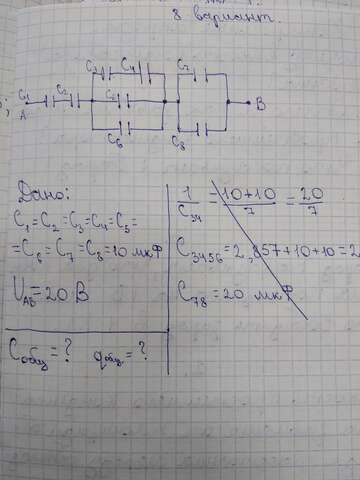 8 вариант
C₃ C₄ C₇
C₁ C₂ C₅ B
A
C₆ C₈
Дано:
C₁=C₂=C₃=C₄=C₅=
=C₆=C₇=C₈=10 мкФ
U_AB=20 В
C_общ=? q_общ=?
1/C₃₄=(10+10)/7=20/7
C₃₄₅₆=2,857+10+10=2
C₇₈=20 мкФ